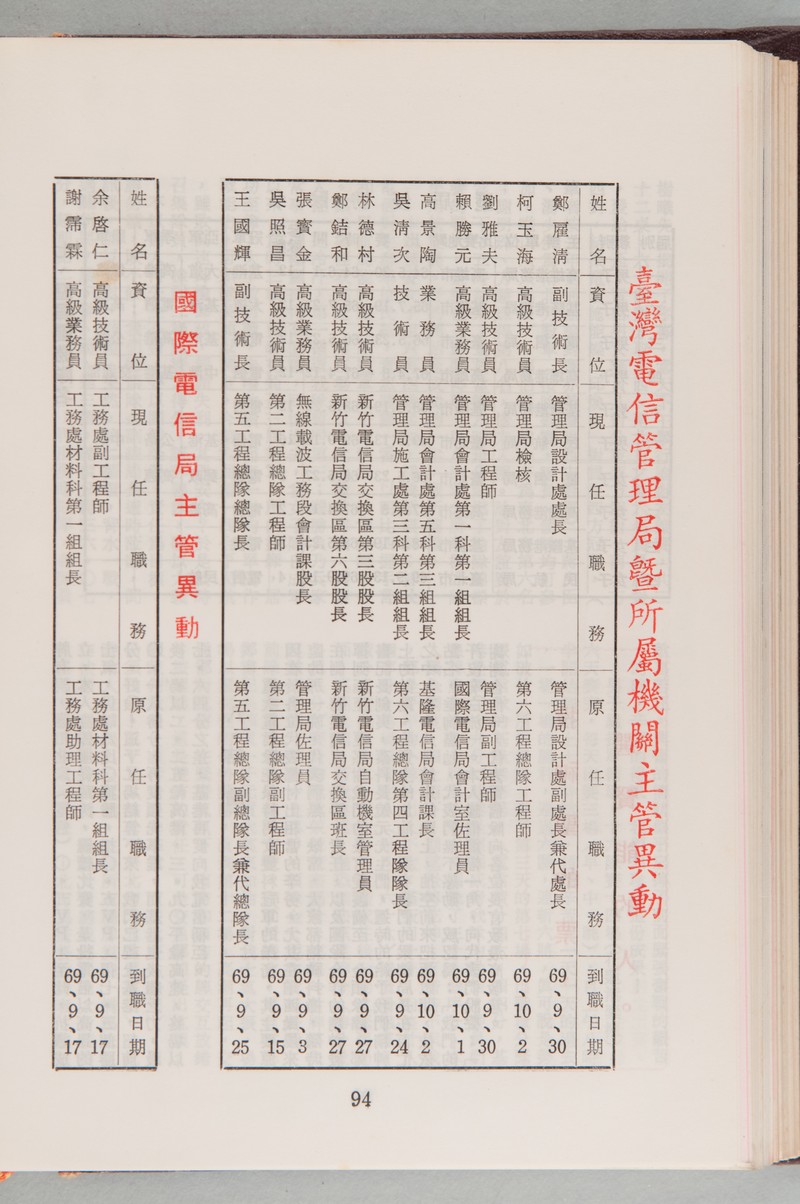 臺灣電信管理局暨所屬機關主管異動
姓名 資位 現任職務 原任職務 到職日期
鄭雁清 副技術長 管理局設計處處長 管理局設計處副處長兼代處長 69、9、30
柯玉海 高級技術員 管理局檢核 第六工程總隊工程師 69、10、2
劉雅夫 高級技術員 管理局工程師 管理局副工程師 69、9、30
賴勝元 高級業務員 管理局會計處第一科第一組組長 國際電信局會計室佐理員 69、10、1
高景陶 業務員 管理局會計處第五科第三組組長 基隆電信局會計課長 69、10、2
吳清次 技術員 管理局施工處第三科第二組組長 第六工程總隊第四工程隊隊長 69、9、24
林德村 高級技術員 新竹電信局交換區第三股股長 新竹電信局自動機室管理員 69、9、27
鄭鋕和 高級技術員 新竹電信局交換區第六股股長 新竹電信局交換區班長 69、9、27
張寶金 高級業務員 無線載波工務段會計課股長 管理局佐理員 69、9、3
吳照昌 高級技術員 第二工程總隊工程師 第二工程總隊副工程師 69、9、15
王國輝 副技術長 第五工程總隊總隊長 第五工程總隊副總隊長兼代總隊長 69、9、25
國際電信局主管異動
姓名 資位 現任職務 原任職務 到職日期
余啓仁 高級技術員 工務處副工程師 工務處材料科第一組組長 69、9、17
謝霈霖 高級業務員 工務處材料科第一組組長 工務處助理工程師 69、9、17
94